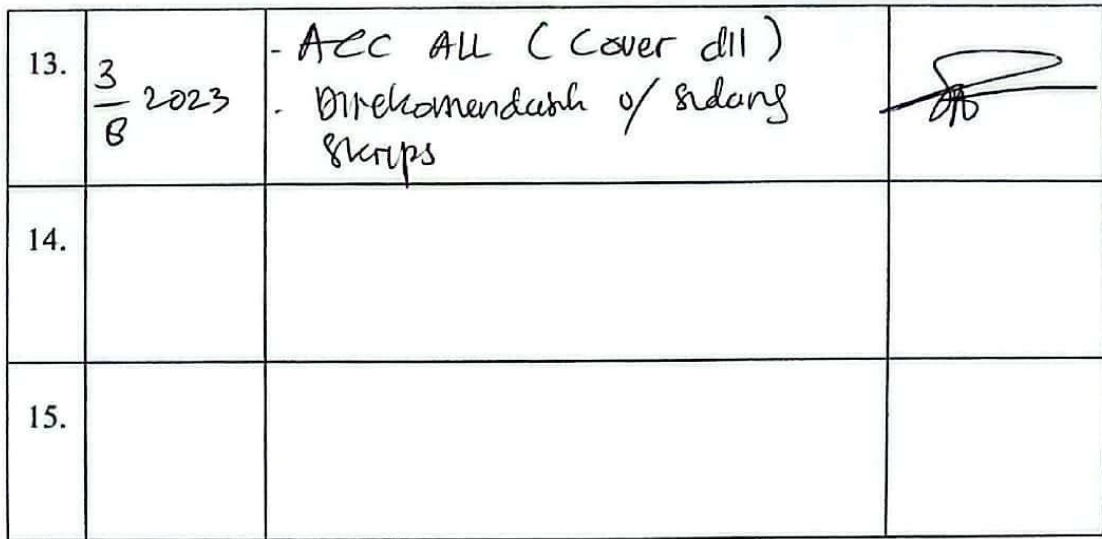 13.
3/8 2023
- ACC ALL (Cover dll)
- Direkomendasik o/ sidang
skrips
14.
15.